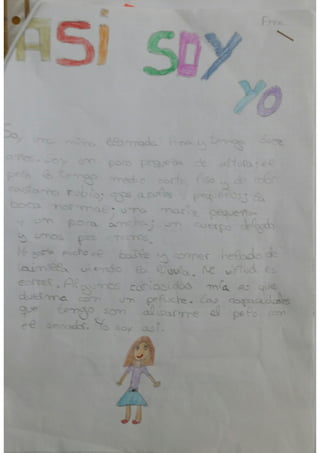 ASI SOY
YO
Soy una niña llamada y tengo doce
años. Soy un poco pequeña de altura; el
pelo lo tengo medio corto, liso y de color
castaño rubio; ojos azules y pequeños; la
boca normal; una nariz pequeña
y un poco ancha; un cuerpo delgado
y unos pies
Me gusta mucho el baile y comer helado de
vainilla viendo la lluvia. Mi virtud es
correr. Algunas curiosidades mía es que
duermo con un peluche. Las
que tengo son alisarme el pelo con
el secador. Yo soy así.